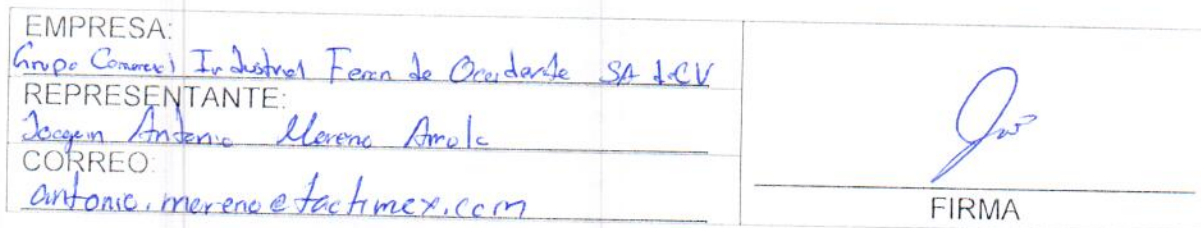 EMPRESA:
Grupo Comercial Industrial Feran de Occidente SA de CV
REPRESENTANTE:
Joaquin Antonio Moreno
CORREO:
antonio.moreno@tactimex.com
FIRMA